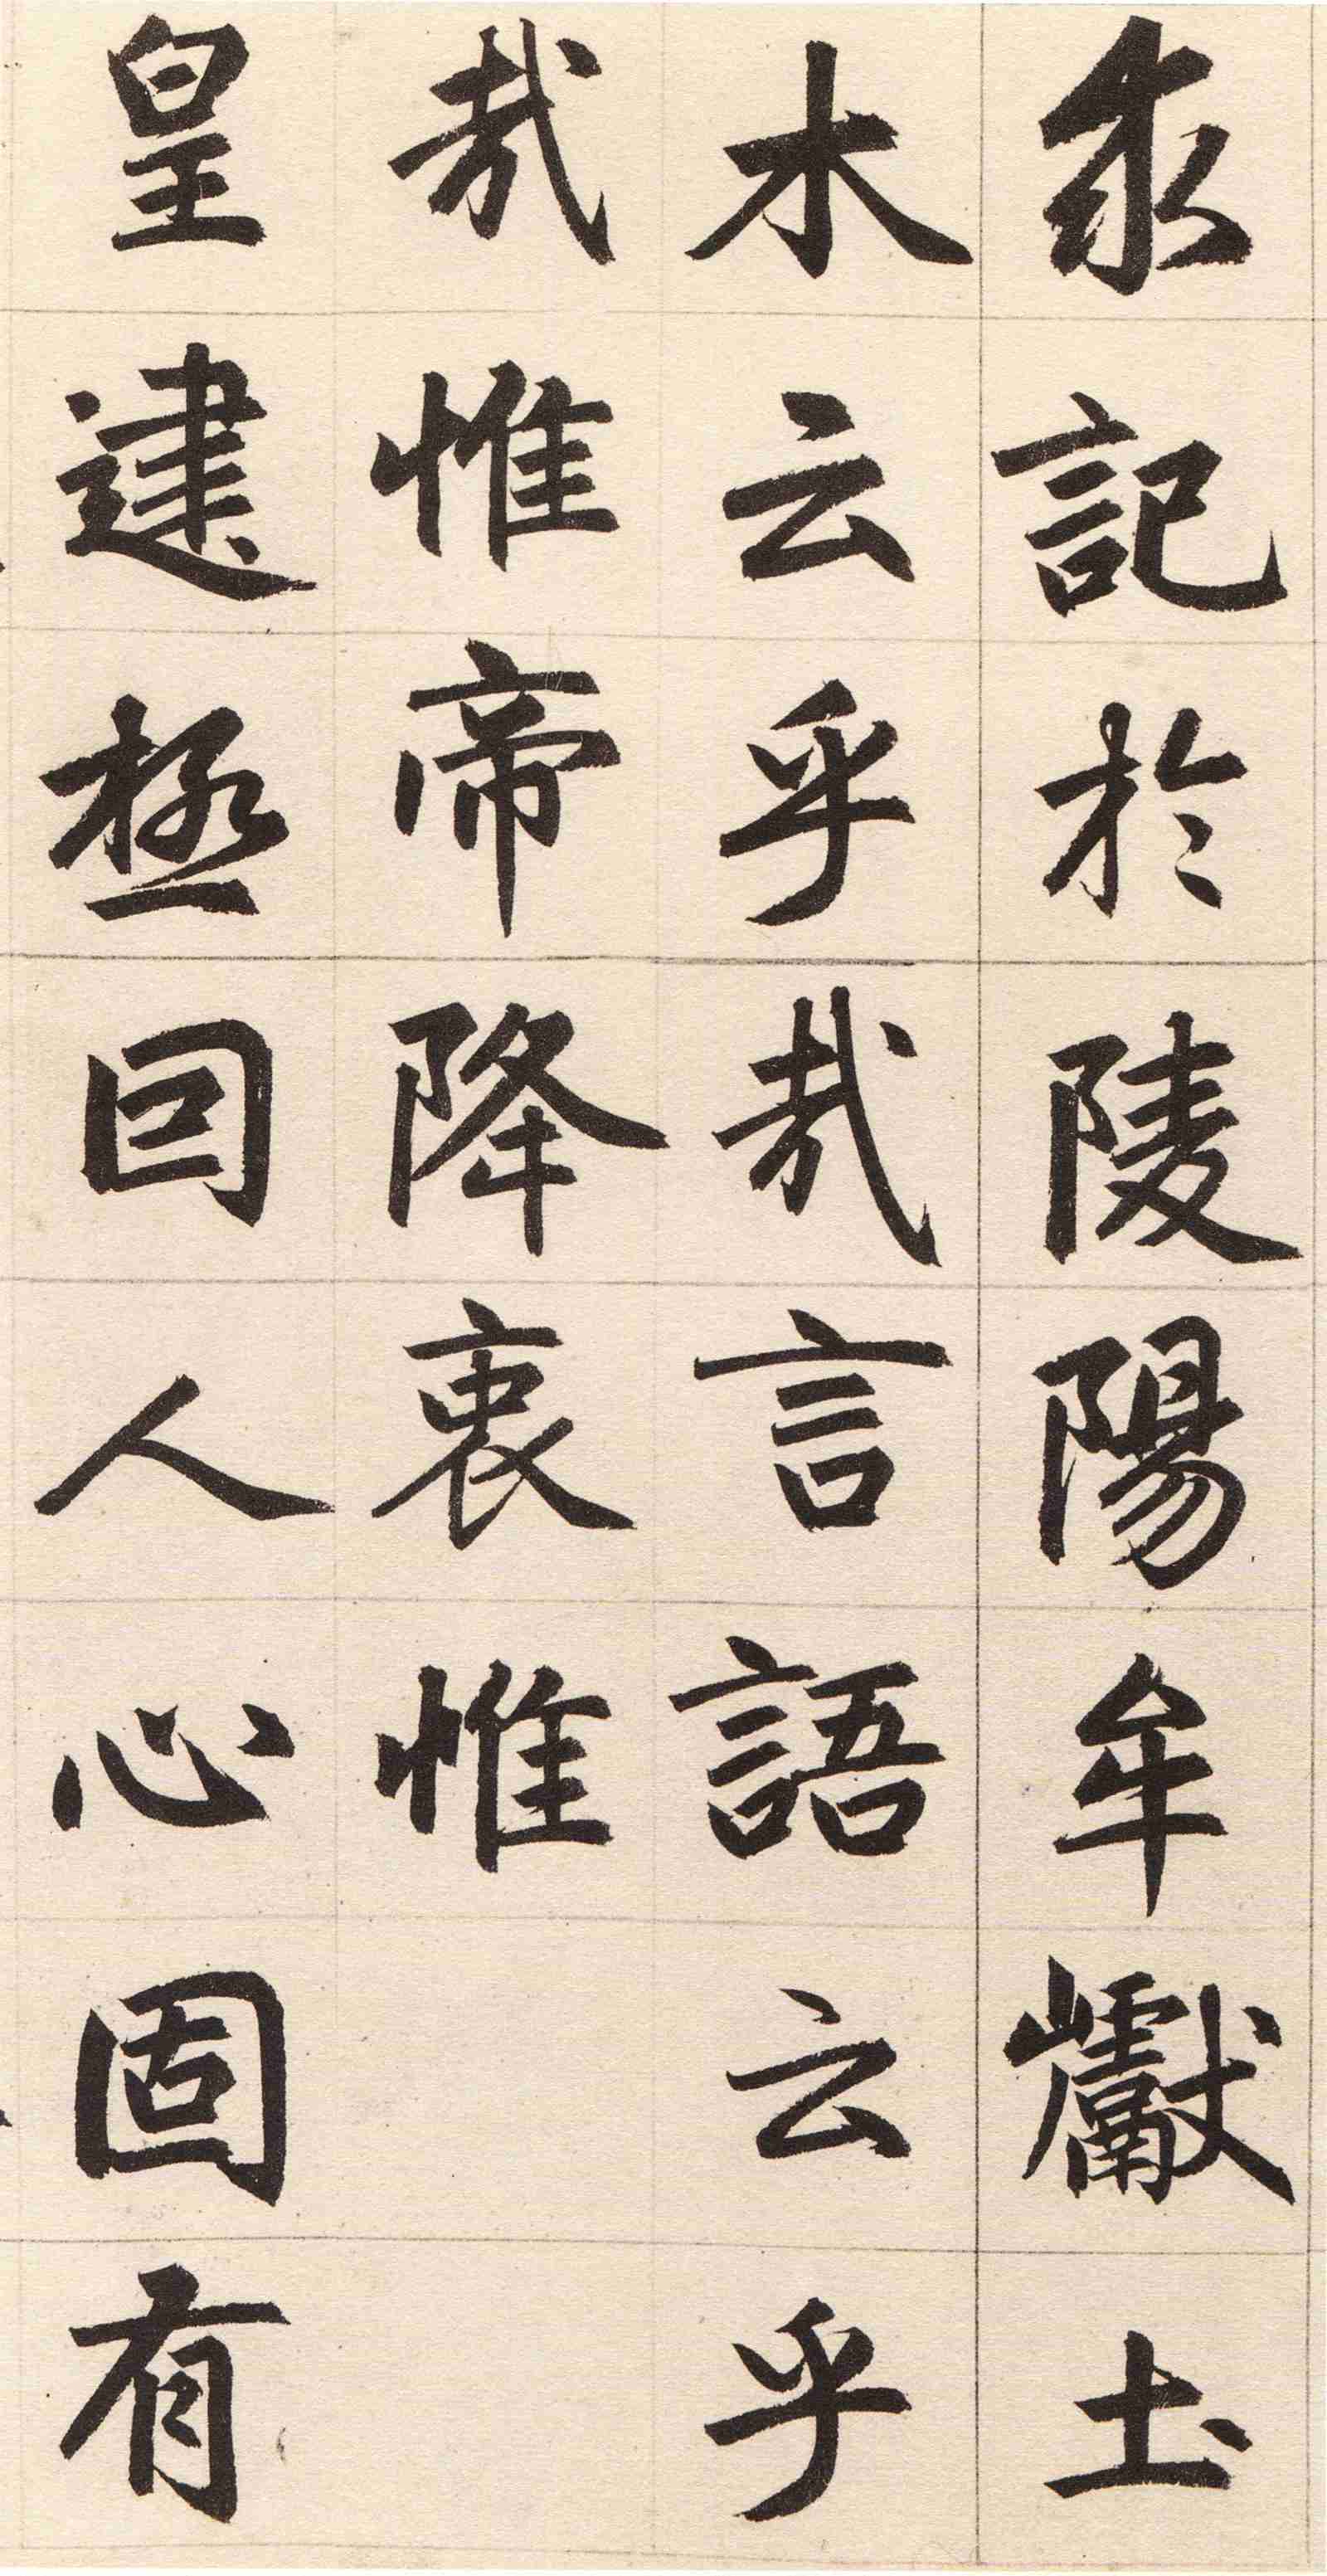 求記於陵陽牟巘土
木云乎哉言語云乎
哉惟帝降衷惟
皇建極因人心固有